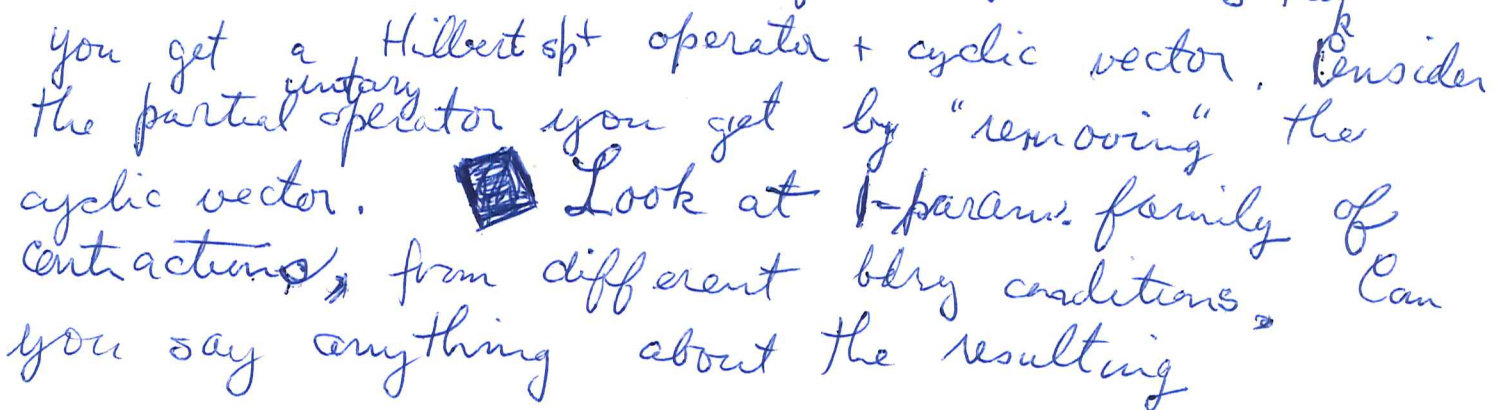 you get a Hilbert sp + operator + cyclic vector. Consider
the partial unitary operator you get by "removing" the
cyclic vector. Look at 1-param. family of
contractions, from different bdry conditions. Can
you say anything about the resulting